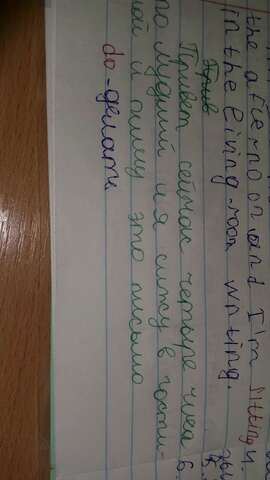 the afternoon and I'm sitting
in the living room writing.
Прив
Привет сейчас четыре часа
по лудний и я сижу в гости-
ной и пишу это письмо
do-делать